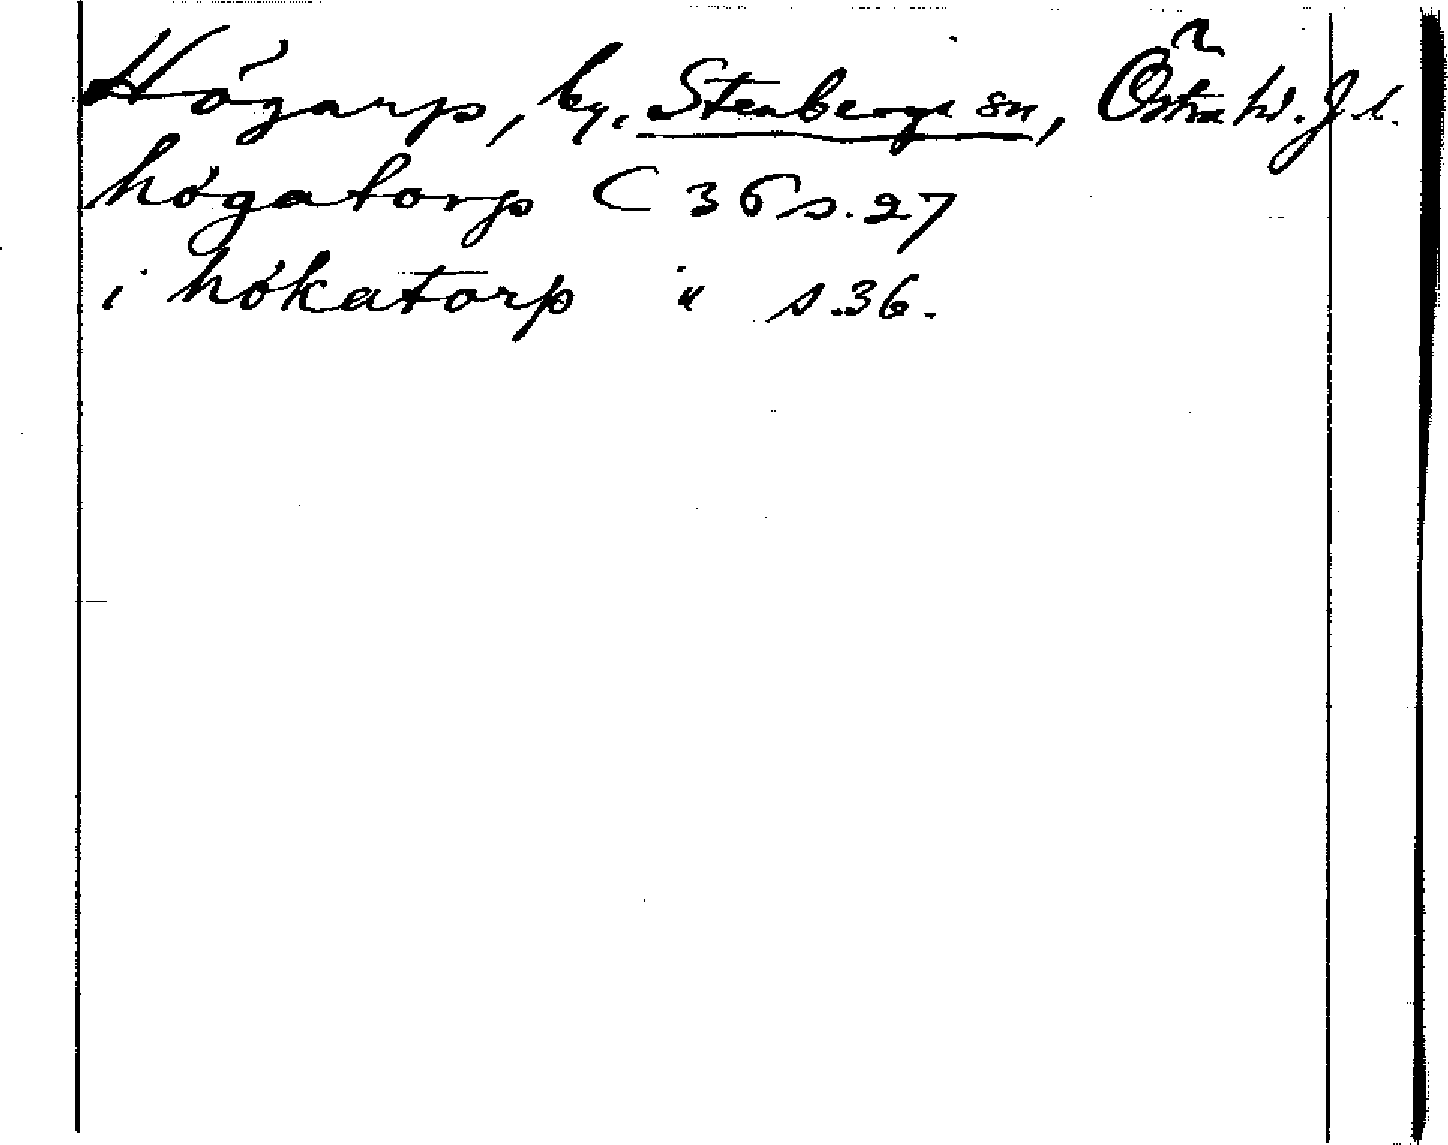 Högarp, by, Stenberga sn, Östra hd. J. l.
högatorp C 36 s. 27
i hökatorp " s. 36.